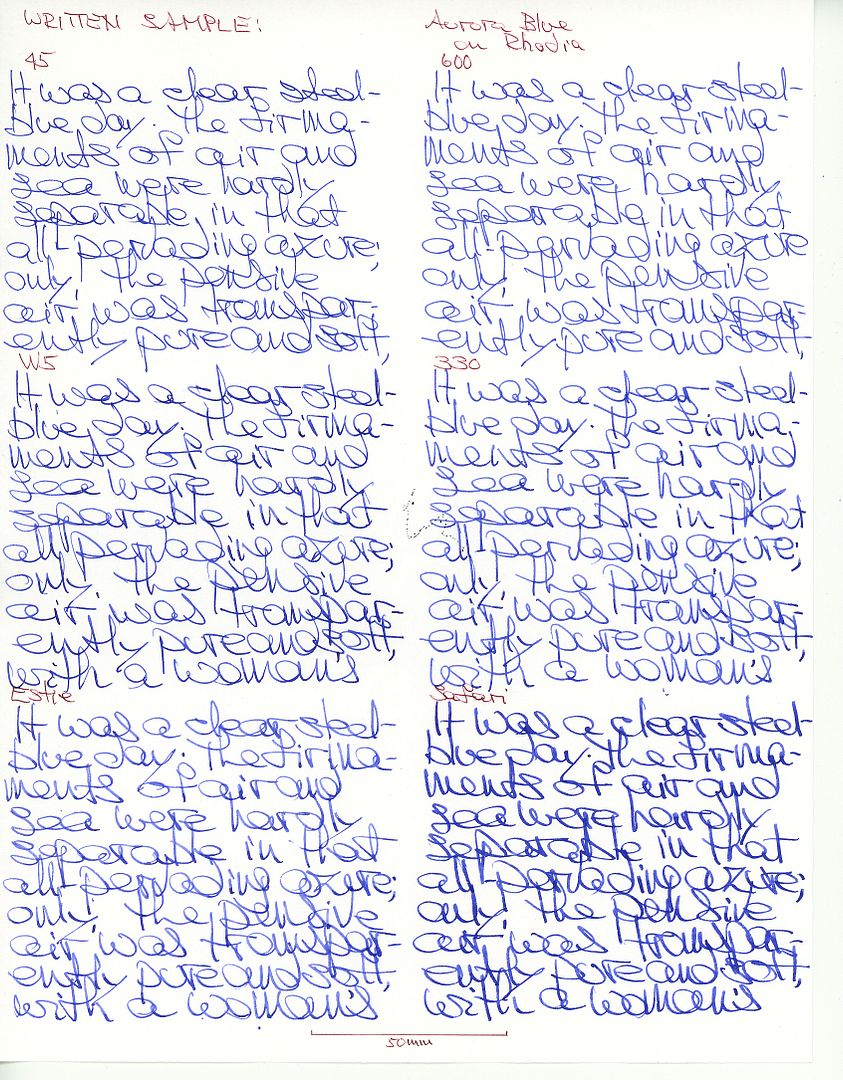 WRITTEN SAMPLE:
Aurora Blue
on Rhodia
45
It was a clear steel-
blue day. The firma-
ments of air and
sea were hardly
separable in that
all-pervading azure;
only, the pensive
air was transpar-
ently pure and soft,
W5
It was a clear steel-
blue day. The firma-
ments of air and
sea were hardly
separable in that
all-pervading azure;
only, the pensive
air was transpar-
ently pure and soft,
with a woman's
Estie
It was a clear steel-
blue day. The firma-
ments of air and
sea were hardly
separable in that
all-pervading azure;
only, the pensive
air was transpar-
ently pure and soft,
with a woman's
600
It was a clear steel-
blue day. The firma-
ments of air and
sea were hardly
separable in that
all-pervading azure
only, the pensive
air was transpar-
ently pure and soft,
330
It was a clear steel-
blue day. The firma-
ments of air and
sea were hardly
separable in that
all-pervading azure;
only, the pensive
air was transpar-
ently pure and soft,
with a woman's
Safari
It was a clear steel-
blue day. The firma-
ments of air and
sea were hardly
separable in that
all-pervading azure;
only, the pensive
air was transpar-
ently pure and soft,
with a woman's
50mm